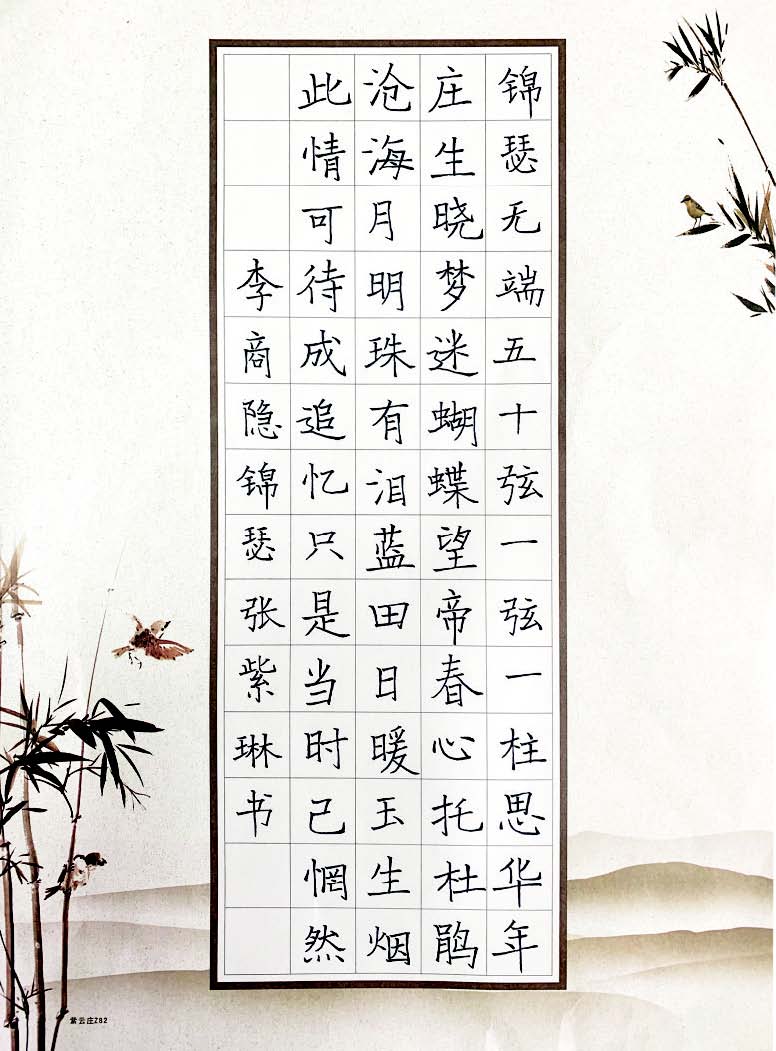 锦瑟无端五十弦一弦一柱思华年
庄生晓梦迷蝴蝶望帝春心托杜鹃
沧海月明珠有泪蓝田日暖玉生烟
此情可待成追忆只是当时己惘然
李商隐锦瑟张紫琳书
紫云庄Z82